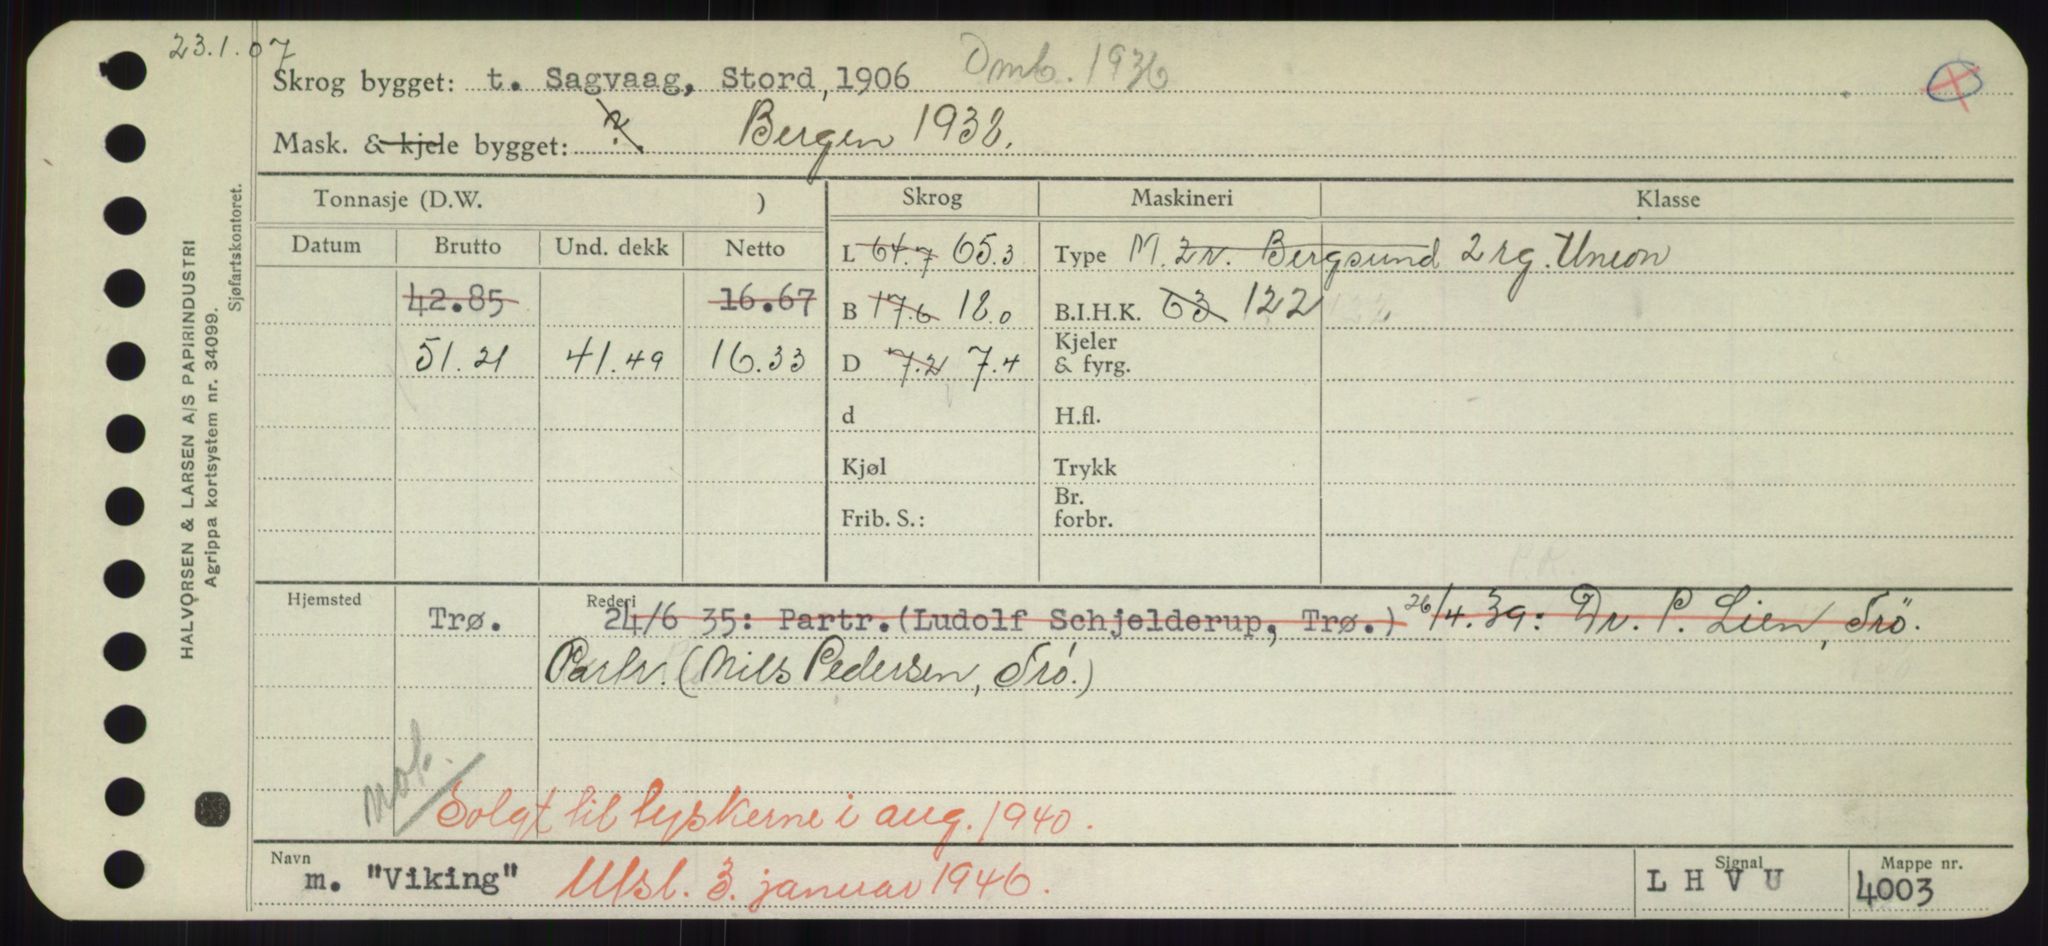 23.1.07
Skrog bygget: t. Sagvaag, Stord, 1906 Omb. 1936
Mask. & kjele bygget: ? Bergen 1938.
Tonnasje (D.W. ) Skrog Maskineri Klasse
Datum Brutto Und. dekk Netto
L 64.7 65.3 Type M. 2 v. Bergsund 2 rg. Union
42.85 16.67 B 17.6 18.0 B.I.H.K. 63 122
51.21 41.49 16.33 D 7.2 7.4 Kjeler & fyrg.
d H.fl.
Kjøl Trykk
Frib. S.: Br. forbr.
Hjemsted Rederi
Trø. 24/6 35: Partr.(Ludolf Schjelderup, Trø.) 26/4.39: Dr. P. Lien, Trö.
Partr. (Nils Pedersen, Trö.)
mot.
Solgt til tyskerne i aug. 1940.
Navn Signal Mappe nr.
m. "Viking" Utsl. 3. januar 1946. L H V U 4003
HALVORSEN & LARSEN A/S PAPIRINDUSTRI
Agrippa kortsystem nr. 34099.
Sjøfartskontoret.